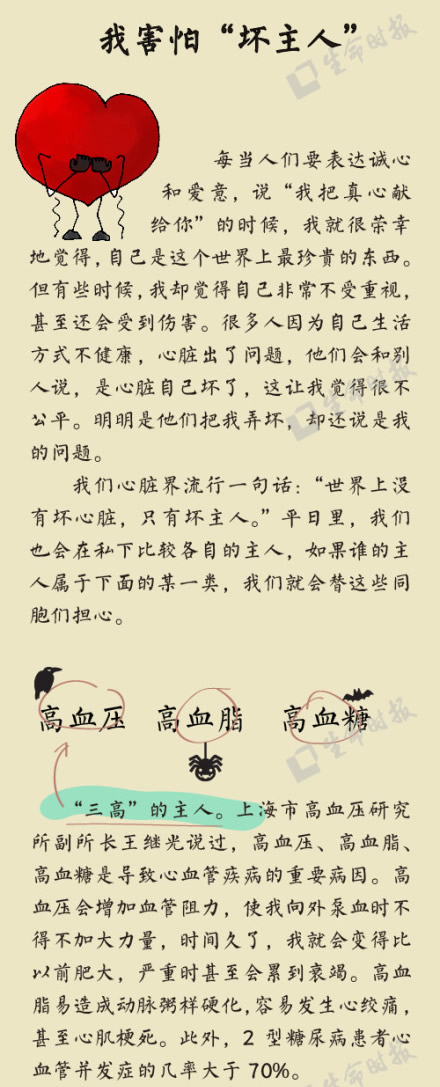 我害怕“坏主人”
生命时报
每当人们要表达诚心
和爱意，说“我把真心献
给你”的时候，我就很荣幸
地觉得，自己是这个世界上最珍贵的东西。
但有些时候，我却觉得自己非常不受重视，
甚至还会受到伤害。很多人因为自己生活
方式不健康，心脏出了问题，他们会和别
人说，是心脏自己坏了，这让我觉得很不
公平。明明是他们把我弄坏，却还说是我
的问题。
生命时报
我们心脏界流行一句话：“世界上没
有坏心脏，只有坏主人。”平日里，我们
也会在私下比较各自的主人，如果谁的主
人属于下面的某一类，我们就会替这些同
胞们担心。
高血压 高血脂 高血糖
生命时报
“三高”的主人。上海市高血压研究
所副所长王继光说过，高血压、高血脂、
高血糖是导致心血管疾病的重要病因。高
血压会增加血管阻力，使我向外泵血时不
得不加大力量，时间久了，我就会变得比
以前肥大，严重时甚至会累到衰竭。高血
脂易造成动脉粥样硬化，容易发生心绞痛，
甚至心肌梗死。此外，2 型糖尿病患者心
血管并发症的几率大于 70%。
生命时报